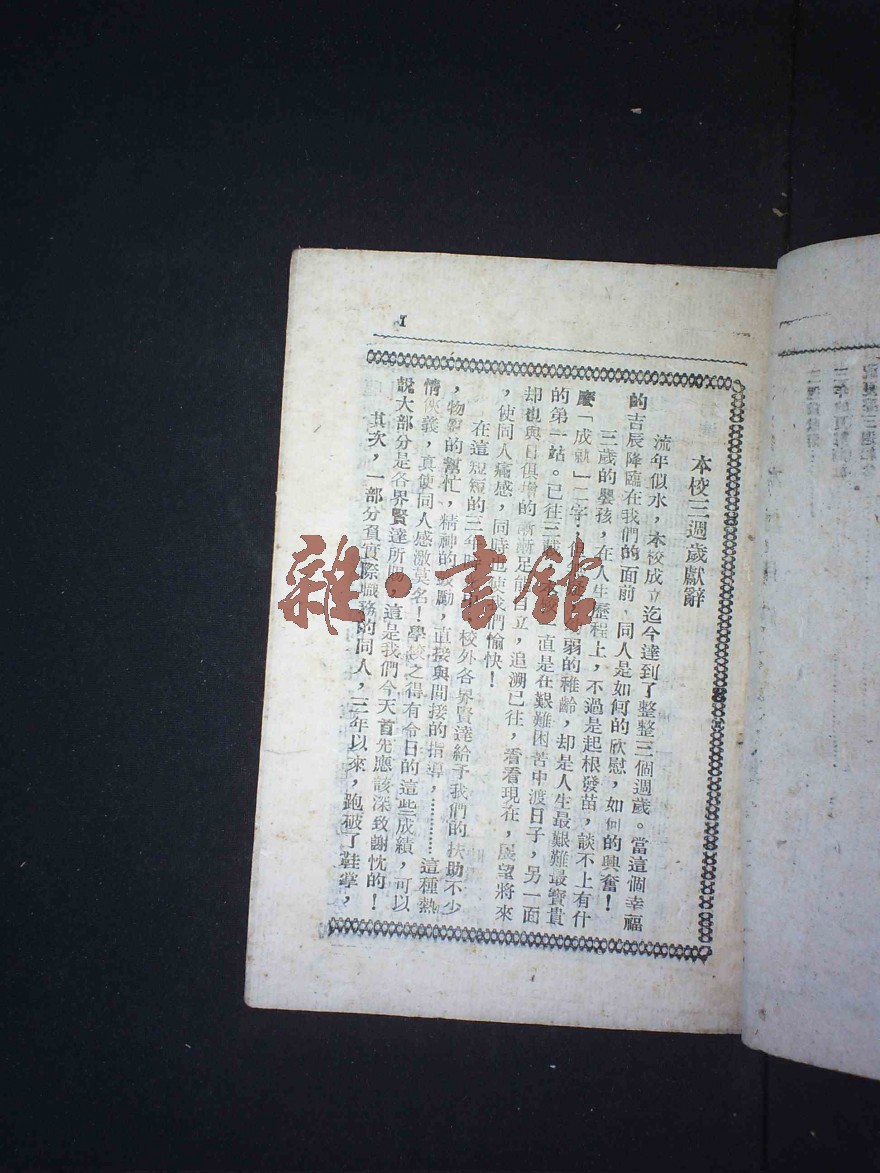 1
本校三週歲獻辭
流年似水，本校成立迄今達到了整整三個週歲。當這個幸福
的吉辰降臨在我們的面前，同人是如何的欣慰，如何的興奮！
三歲的嬰孩，在人生歷程上，不過是起根發苗，談不上有什
麼「成就」二字；弱的稚齡，却是人生最艱難最寶貴
的第一站。已往三直是在艱難困苦中渡日子，另一面
却也與日俱增的漸漸足能自立，追溯已往，看看現在，展望將來
，使同人痛感，同時也使我們愉快！
在這短短的三年校外各界賢達給予我們的扶助不少
，物質的幫忙，精神的鼓勵，直接與間接的指導，………這種熱
情俠義，真使同人感激莫名！學校之得有今日的這些成績，可以
說大部分是各界賢達所賜，這是我們今天首先應該深致謝忱的！
其次，一部分負實際職務的同人，三年以來，跑破了鞋掌，
雜·書館